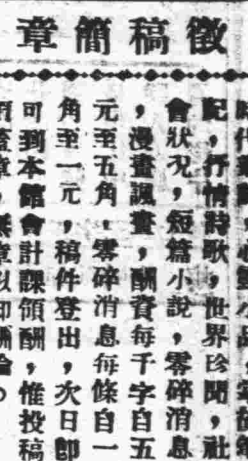 徵稿簡章
記，抒情詩歌，世界珍聞，社
會狀况，短篇小說，零碎消息
，漫畫諷畫，酬資每千字自五
元至五角，零碎消息每條自一
角至一元，稿件登出，次日卽
可到本館會計課領酬，惟投稿